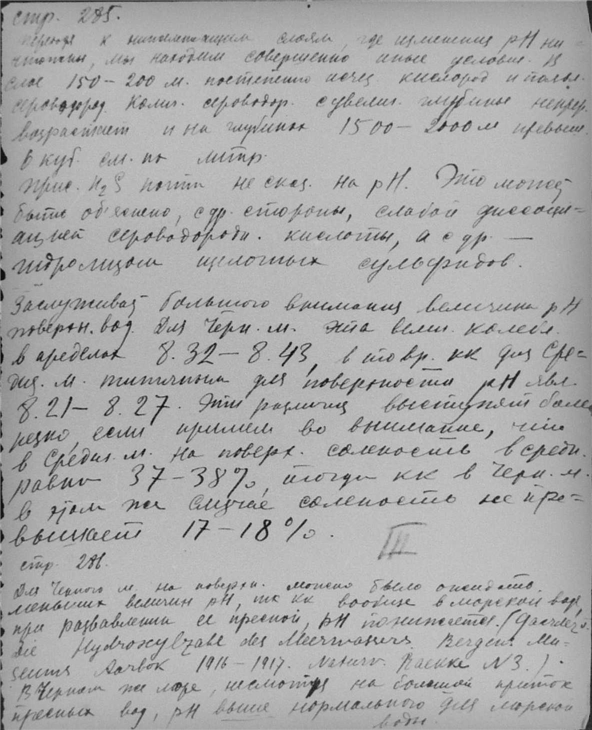 стр. 285.
к нижележащим слоям, где изменения pH ни-
чтожны, мы находим совершенно иные условия. В
слое 150–200 м. постепенно исчез. кислород и появл.
сероводород. Колич. сероводор. с увелич. глубины непрер.
возрастает и на глубинах 1500–2000 м превыш.
6 куб. см. на литр.
Прис. H₂S почти не сказ. на pH. Это может
быть объяснено, с др. стороны, слабой диссоци-
ацией сероводородн. кислоты, а с др. —
гидролизом щелочных сульфидов.
Заслуживает большого внимания величина pH
поверхн. вод. Для Черн. м. эта велич. колебл.
в пределах 8.32–8.43, в то вр. кк для Сре-
диз. м. типичным для поверхности pH явл.
8.21–8.27. Эти различия выступят более
резко, если примем во внимание, что
в Средиз. м. на поверх. соленость в средн.
равна 37–38%, тогда кк в Черн. м.
в этом же случае соленость не пре-
вышает 17–18%.
III
стр. 286.
Для Черного м. на поверхн. можно было ожидать
меньших величин pH, тк кк вообще в морской воде,
при разбавлении ее пресной, pH понижается. (
die Hydroxylzahl des Meerwassers Bergens Mu-
seums Aarbok 1916–1917. Naturv. Raekke N 3.)
В Черном же море, несмотря на большой приток
пресных вод, pH выше нормального для морской
воды.